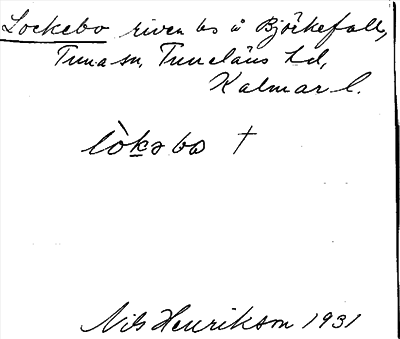 Lockebo riven bs å Björkefall,
Tuna sn, Tunaläns hd,
Kalmar l.
lòkəbo †
Nils Henrikson 1931